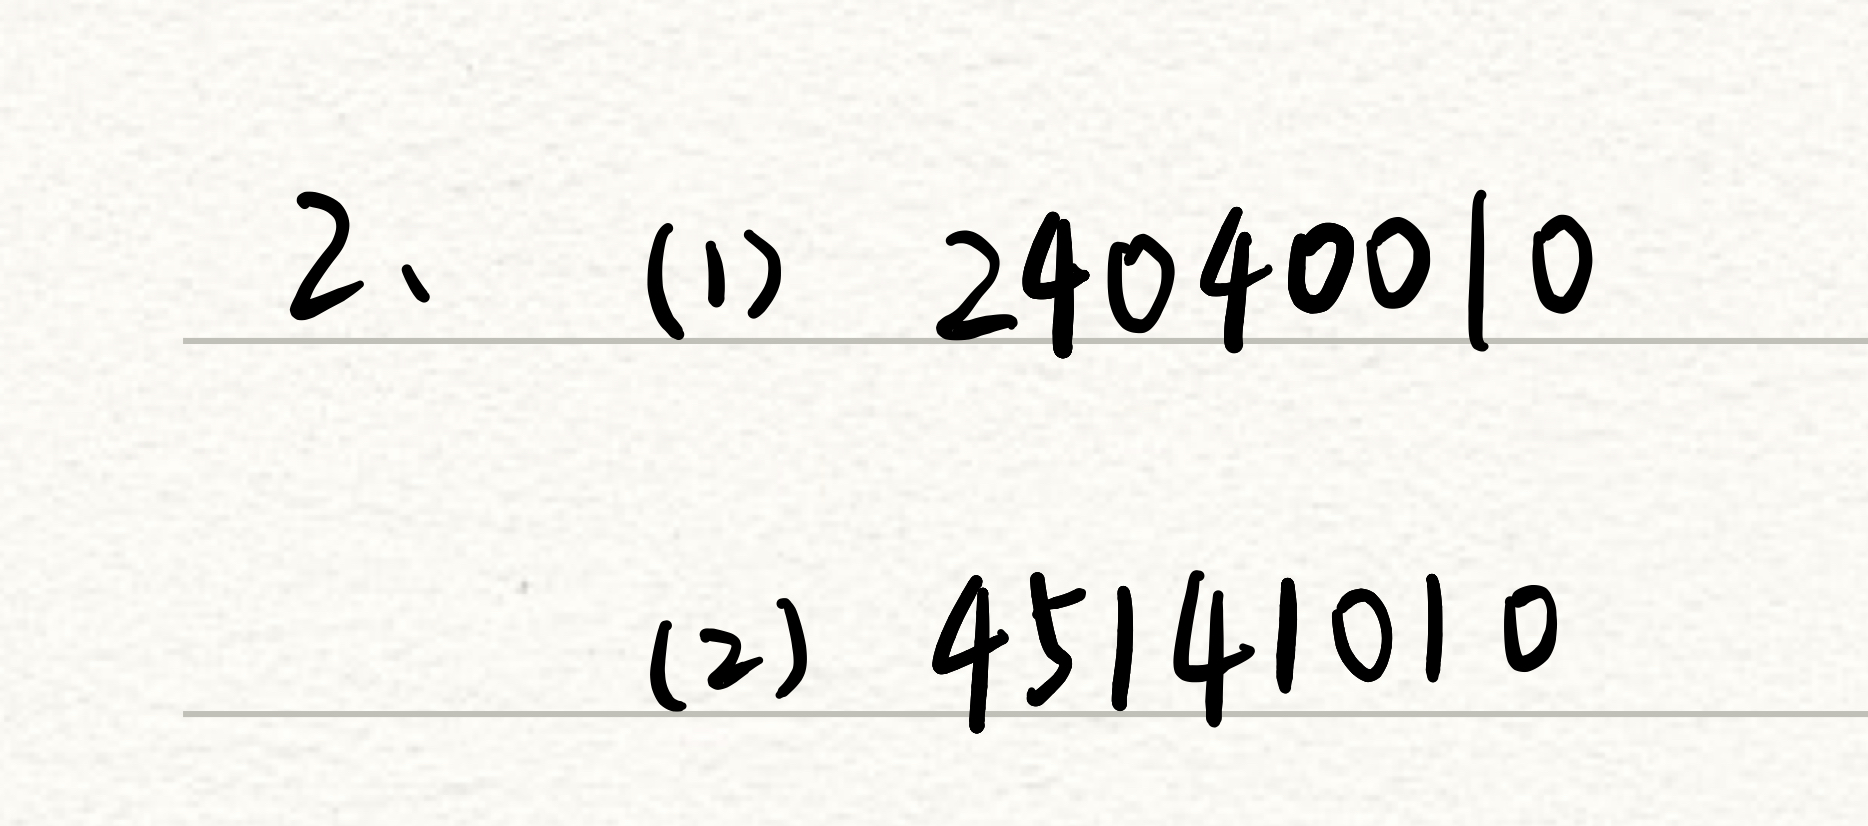 2、 (1) 24040010
(2) 45141010